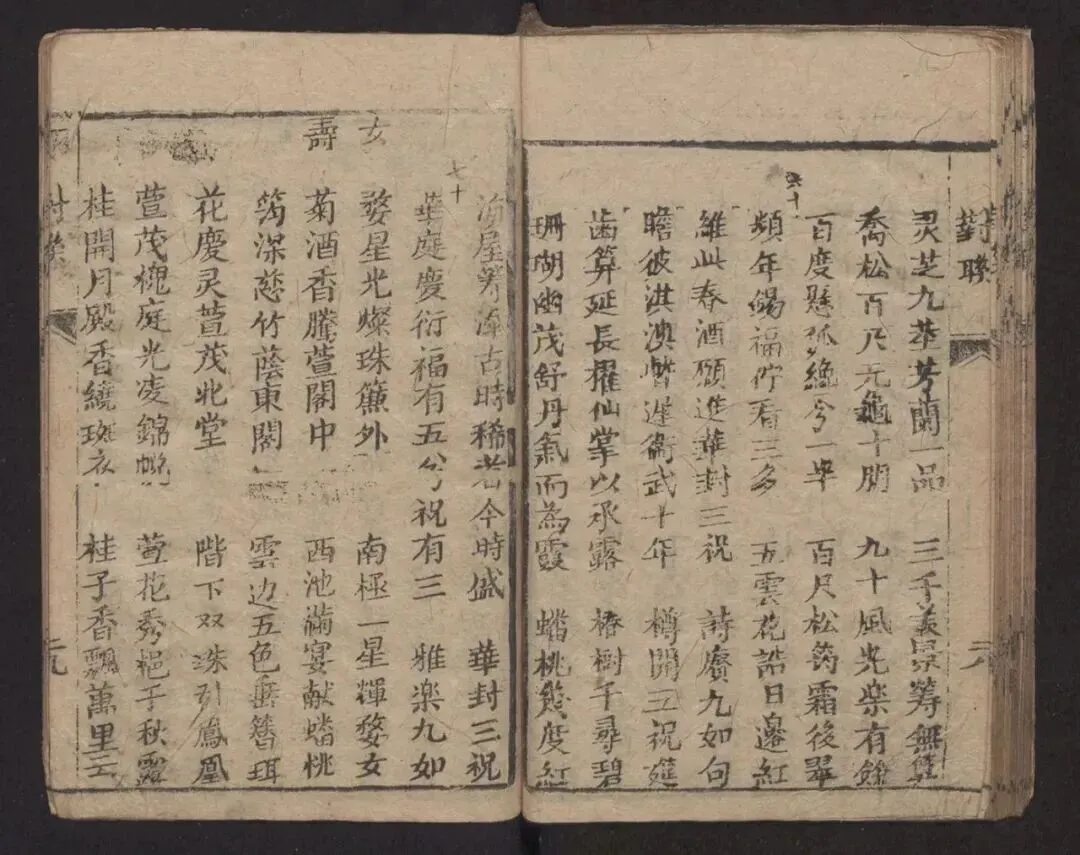 對聯
灵芝九莖芳蘭一品 三千美景筹無隻
喬松百尺元龜十朋 九十風光楽有餘
百度懸弧絶今一畢 百尺松筠霜後翠
六十
頻年錫福佇看三多 五雲花誥日邊紅
維此春酒願進華封三祝 詩賡九如句
瞻彼淇澳暫遅衛武十年 樽開三祝筵
齒算延長擢仙掌以承露 椿樹千尋碧
珊瑚幽茂舒丹氣而為霞 蟠桃幾度紅
二八
七十
海屋筹添古時稀者今時盛 華封三祝
華庭慶衍福有五兮祝有三 雅楽九如
女壽
婺星光燦珠簾外 南極一星輝婺女
菊酒香騰萱閣中 西池滿宴献蟠桃
筠深慈竹蔭東閣 雲边五色垂簪珥
花慶灵萱茂北堂 階下双珠引鳳凰
萱茂槐庭光凌錦 萱花秀挹千秋露
桂開月殿香繞斑衣 桂子香飄萬里云
二九